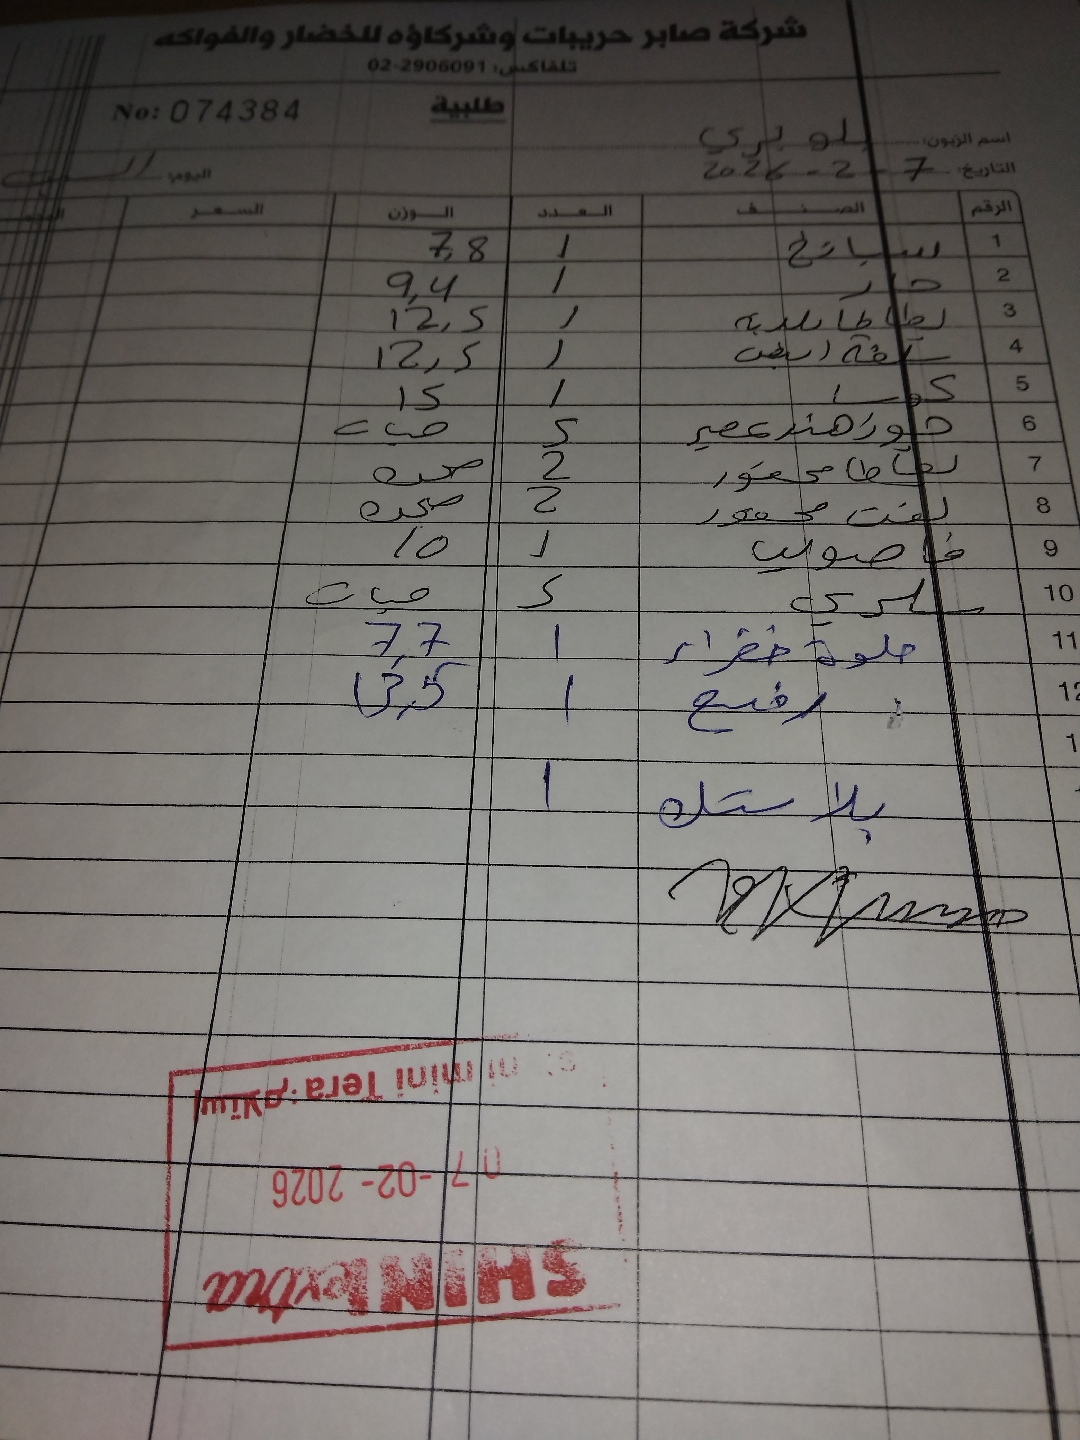 شركة صابر حريبات وشركاؤه للخضار والفواكه
تلفاكس: 02-2906091
No: 074384
طلبية
اسم الزبون: بلو بري
التاريخ: 7-2-2026 اليوم: السبت
الرقم الصنف العدد الوزن السعر
1 سبانخ 1 7,8
2 خيار 1 9,4
3 بطاطا بلدية 1 12,5
4 أبيض 1 12,5
5 كوسا 1 15
6 جوز هند عصير 5 حبات
7 بطاطا محفور 2 صحن
8 لفت محفور 2 صحن
9 فاصوليا 1 10
10 سلري 5 حبات
11 حلوة خضراء 1 7,7
12 رفيع 1 13,5
بلاستك 1
mini Tera
07-02-2026
SHINI extra